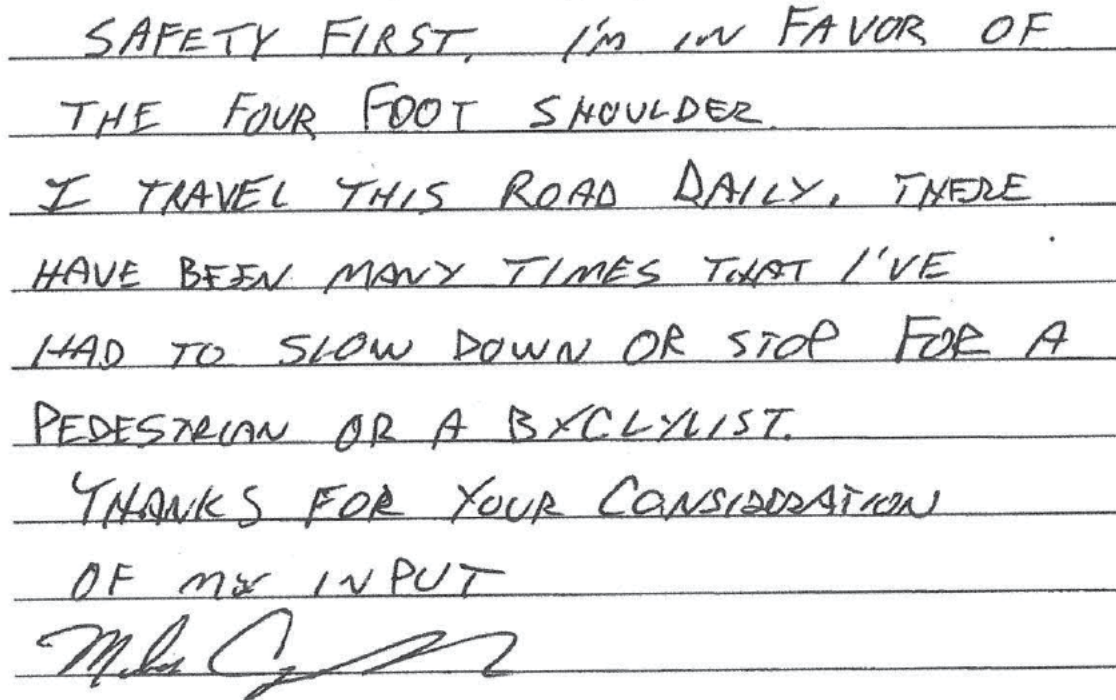 SAFETY FIRST, I'M IN FAVOR OF
THE FOUR FOOT SHOULDER.
I TRAVEL THIS ROAD DAILY. THERE
HAVE BEEN MANY TIMES THAT I'VE
HAD TO SLOW DOWN OR STOP FOR A
PEDESTRIAN OR A BYCLYLIST.
THANKS FOR YOUR CONSIDERATION
OF MY INPUT